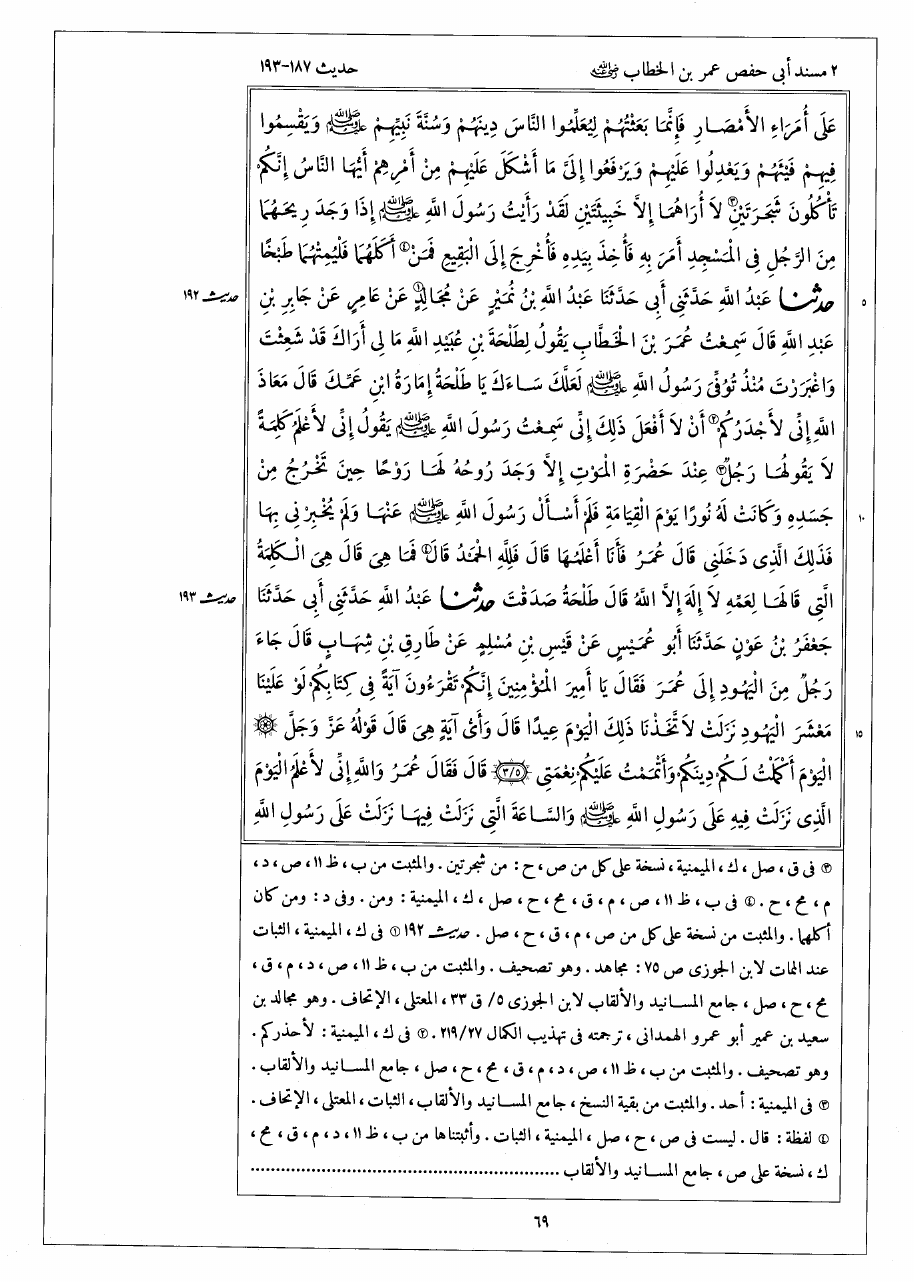 ٢ مسند أبى حفص عمر بن الخطاب رضي الله عنه حديث ١٨٧-١٩٣
عَلَى أُمَرَاءِ الأَمْصَارِ فَإِنَّمَا بَعَثْتُهُمْ لِيُعَلِّمُوا النَّاسَ دِينَهُمْ وَسُنَّةَ نَبِيِّهِمْ ﷺ وَيَقْسِمُوا
فِيهِمْ فَيْئَهُمْ وَيَعْدِلُوا عَلَيْهِمْ وَيَرْفَعُوا إِلَىَّ مَا أَشْكَلَ عَلَيْهِمْ مِنْ أَمْرِهِمْ أَيُّهَا النَّاسُ إِنَّكُمْ
تَأْكُلُونَ شَجَرَتَيْنِ③ لاَ أُرَاهُمَا إِلاَّ خَبِيثَتَيْنِ لَقَدْ رَأَيْتُ رَسُولَ اللَّهِ ﷺ إِذَا وَجَدَ رِيحَهُمَا
مِنَ الرَّجُلِ فِى الْمَسْجِدِ أَمَرَ بِهِ فَأُخِذَ بِيَدِهِ فَأُخْرِجَ إِلَى الْبَقِيعِ فَمَنْ④ أَكَلَهُمَا فَلْيُمِتْهُمَا طَبْخًا
حدثنا عَبْدُ اللَّهِ حَدَّثَنِى أَبِى حَدَّثَنَا عَبْدُ اللَّهِ بْنُ نُمَيْرٍ عَنْ مُجَالِدٍ① عَنْ عَامِرٍ عَنْ جَابِرِ بْنِ
حديث ١٩٢
٥
عَبْدِ اللَّهِ قَالَ سَمِعْتُ عُمَرَ بْنَ الْخَطَّابِ يَقُولُ لِطَلْحَةَ بْنِ عُبَيْدِ اللَّهِ مَا لِى أَرَاكَ قَدْ شَعِثْتَ
وَاغْبَرَرْتَ مُنْذُ تُوُفِّىَ رَسُولُ اللَّهِ ﷺ لَعَلَّكَ سَاءَكَ يَا طَلْحَةُ إِمَارَةُ ابْنِ عَمِّكَ قَالَ مَعَاذَ
اللَّهِ إِنِّى لأَجْدَرُكُمْ② أَنْ لاَ أَفْعَلَ ذَلِكَ إِنِّى سَمِعْتُ رَسُولَ اللَّهِ ﷺ يَقُولُ إِنِّى لأَعْلَمُ كَلِمَةً
لاَ يَقُولُهَا رَجُلٌ③ عِنْدَ حَضْرَةِ الْمَوْتِ إِلاَّ وَجَدَ رُوحُهُ لَهَا رَوْحًا حِينَ تَخْرُجُ مِنْ
جَسَدِهِ وَكَانَتْ لَهُ نُورًا يَوْمَ الْقِيَامَةِ فَلَمْ أَسْأَلْ رَسُولَ اللَّهِ ﷺ عَنْهَا وَلَمْ يُخْبِرْنِى بِهَا
١٠
فَذَلِكَ الَّذِى دَخَلَنِى قَالَ عُمَرُ فَأَنَا أَعْلَمُهَا قَالَ فَلِلَّهِ الْحَمْدُ قَالَ④ فَمَا هِىَ قَالَ هِىَ الْكَلِمَةُ
الَّتِى قَالَهَا لِعَمِّهِ لاَ إِلَهَ إِلاَّ اللَّهُ قَالَ طَلْحَةُ صَدَقْتَ حدثنا عَبْدُ اللَّهِ حَدَّثَنِى أَبِى حَدَّثَنَا
حديث ١٩٣
جَعْفَرُ بْنُ عَوْنٍ حَدَّثَنَا أَبُو عُمَيْسٍ عَنْ قَيْسِ بْنِ مُسْلِمٍ عَنْ طَارِقِ بْنِ شِهَابٍ قَالَ جَاءَ
رَجُلٌ مِنَ الْيَهُودِ إِلَى عُمَرَ فَقَالَ يَا أَمِيرَ الْمُؤْمِنِينَ إِنَّكُمْ تَقْرَءُونَ آيَةً فِى كِتَابِكُمْ لَوْ عَلَيْنَا
مَعْشَرَ الْيَهُودِ نَزَلَتْ لاَتَّخَذْنَا ذَلِكَ الْيَوْمَ عِيدًا قَالَ وَأَىُّ آيَةٍ هِىَ قَالَ قَوْلُهُ عَزَّ وَجَلَّ ۞
١٥
الْيَوْمَ أَكْمَلْتُ لَكُمْ دِينَكُمْ وَأَتْمَمْتُ عَلَيْكُمْ نِعْمَتِى (٣/٥) قَالَ فَقَالَ عُمَرُ وَاللَّهِ إِنِّى لأَعْلَمُ الْيَوْمَ
الَّذِى نَزَلَتْ فِيهِ عَلَى رَسُولِ اللَّهِ ﷺ وَالسَّاعَةَ الَّتِى نَزَلَتْ فِيهَا نَزَلَتْ عَلَى رَسُولِ اللَّهِ
③ فى ق ، صل ، ك ، الميمنية ، نسخة على كل من ص ، ح : من شجرتين . والمثبت من ب ، ظ ١١ ، ص ، د ،
م ، مح ، ح . ④ فى ب ، ظ ١١ ، ص ، م ، ق ، مح ، ح ، صل ، ك ، الميمنية : ومن . وفى د : ومن كان
أكلهما . والمثبت من نسخة على كل من ص ، م ، ق ، ح ، صل . حديث ١٩٢ ① فى ك ، الميمنية ، الثبات
عند الممات لابن الجوزى ص ٧٥ : مجاهد . وهو تصحيف . والمثبت من ب ، ظ ١١ ، ص ، د ، م ، ق ،
مح ، ح ، صل ، جامع المسانيد والألقاب لابن الجوزى ٥/ ق ٣٣ ، المعتلى ، الإتحاف . وهو مجالد بن
سعيد بن عمير أبو عمرو الهمدانى ، ترجمته فى تهذيب الكمال ٢١٩/٢٧ . ② فى ك ، الميمنية : لأحذركم .
وهو تصحيف . والمثبت من ب ، ظ ١١ ، ص ، د ، م ، ق ، مح ، ح ، صل ، جامع المسانيد والألقاب .
③ فى الميمنية : أحد . والمثبت من بقية النسخ ، جامع المسانيد والألقاب ، الثبات ، المعتلى ، الإتحاف .
④ لفظة : قال . ليست فى ص ، ح ، صل ، الميمنية ، الثبات . وأثبتناها من ب ، ظ ١١ ، د ، م ، ق ، مح ،
ك ، نسخة على ص ، جامع المسانيد والألقاب ......................................................
٦٩